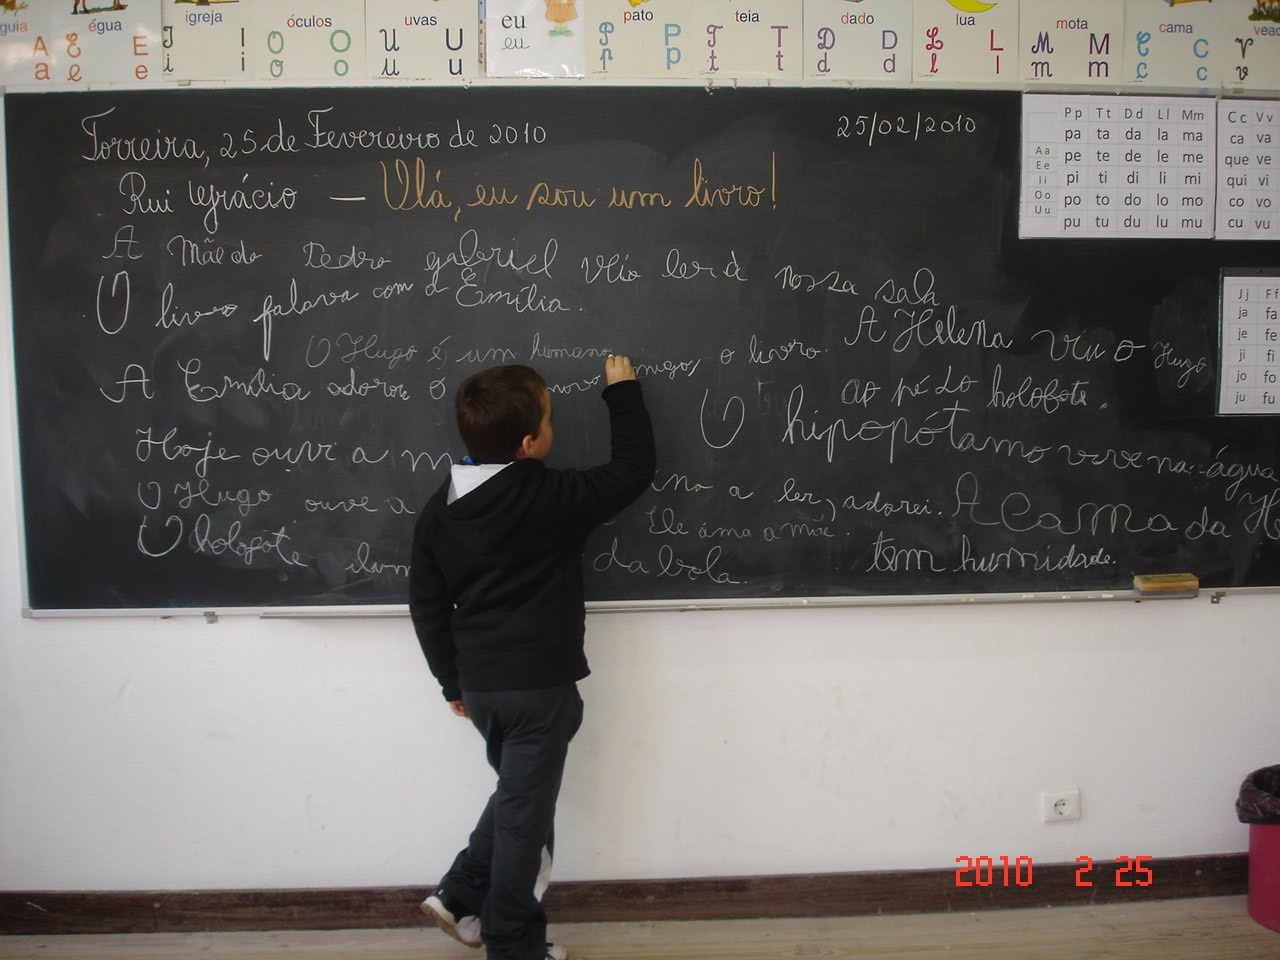 guia égua igreja óculos uvas eu pato teia dado lua mota cama
A E I O U eu P T D L M C V
a e i o u p t d l m c v
Torreira, 25 de Fevereiro de 2010 25/02/2010
Rui Grácio — Olá, eu sou um livro!
A Mãe do Pedro gabriel veio ler à nossa sala
O livro falava com a Emília.
O Hugo é um humano
A Emília adora o novo amigo, o livro.
A Helena viu o Hugo
ao pé do holofote.
O hipopótamo vive na água
Hoje ouvi a m ino a ler, adorei.
A cama da H
tem humidade.
O Hugo ouve a Ele ama a mãe.
O holofote ilum da bola.
Pp Tt Dd Ll Mm
Aa pa ta da la ma
Ee pe te de le me
Ii pi ti di li mi
Oo po to do lo mo
Uu pu tu du lu mu
Cc Vv
ca va
que ve
qui vi
co vo
cu vu
Jj Ff
ja fa
je fe
ji fi
jo fo
ju fu
2010 2 25